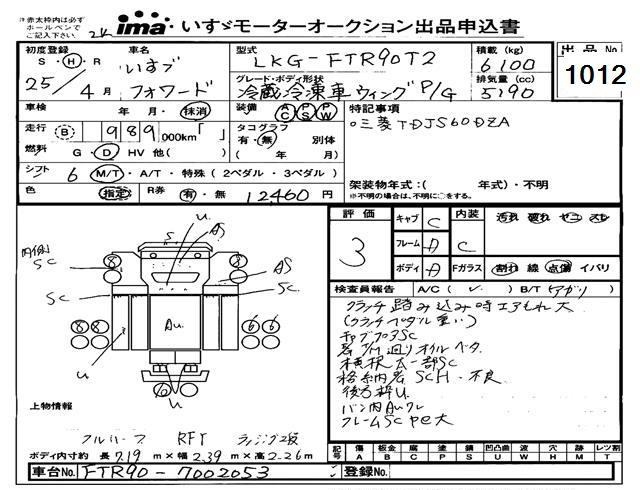 ※赤太枠内は必ず
ホールペンで
ご記入下さい。
ima いすゞモーターオークション出品申込書
初度登録 車名 型式 積載(kg) 出品No
S・H・R いすゞ LKG-FTR90T2 6,100 1012
25/4月 フォワード グレード・ボディ形状 排気量(cc)
冷蔵冷凍車ウィング P/G 5190
車検 年・月・抹消 装備 AC PS PW 特記事項
走行 (B) 989,000km「 」 タコグラフ 有・無 別体 ○三菱 TDJS60DZA
燃料 G・D・HV 他( ) ( 年 月)
シフト 6 M/T・A/T・特殊(2ペダル・3ペダル) 架装物年式:( 年式)・不明
色 指定 R券 有・無 12,460円 ※不明の場合は、不明に○をする。
評価 キャブ C 内装 汚れ 破れ ヤニ スレ
3 フレーム A C
ボディ A Fガラス 割れ 線 点傷 イバリ
検査員報告 A/C( ✓ ) B/T(アガリ)
クラッチ踏み込み時エアもれ大
(クラッチペダル重い)
キャブフロアSC
T/M廻りオイルベタ
横根太一部SC
格納宮 SCH・不良
後ろ枠U.
バン内Auクレ
フレームSC Pe大
U.
S
AS
内側
SC
AS
SC
SC
8
8 8
6 6
Au.
u
u
上物情報
フルハーフ RFT ラッシング2段
ボディ内寸約 長7.19m×幅2.39m×高2.26m
記号 傷 板金 腐 塗 錆 凹凸 波 穴 歪 跡 レツ割
A B C P S U W H M T
車台No. FTR90-7002053 登録No.